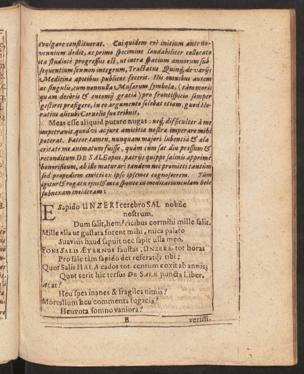 evulgare constituerat. Cui quidem rei initium ante no-
vennium dedit, ac primo specimine laudabiliter collocato
ita studiose progressus est, ut intra spatium annorum sub-
sequentium sex non integrum, Tractatus Quinq; de varijs
Medicinæ apicibus publicet fecerit. His omnibus autem
ac singulis, cum nonnulla Musarum symbola, (tàm honoris
quàm decoris & encomij gratiâ) pro frontispicio semper
gestiret præfigere, in eo argumento solebat etiam, quod Ho-
ratius alicubi Carneliô suo tribuit,
Meas esse aliquid putare nugas: neq; difficulter à me
impetravit, quod vi acjure amicitiæ nostra imperare mihi
poterat. Fateor tamen, nunquam majori lubentiâ & ala-
critate me animatum fuisse, quàm cum sat diu pressum &
reconditum DE SALE opus, patrij quippe salini apprimè
honorificum, ab illo maturari tandem nec promitti tantùm
sed propediem emitti ex ipso ipsemet cognoscerem. Tùm
igitur & rogatu ejus & mea sponte in modicatiunculam hõc
subnexam incideram:
E Sapido UNZERI cerebro SAL nobile
nostrum.
Dum salit, hem! ricibus cormihi mille salit.
Mille alia ut gustata fòcent mihi, mica palato
Suaviùs haud sapuit nec sapit ulla meo.
FONS SALIS ÆTERNUS faustas, UNZERE, tot horas
Pro sale tàm sapido det referatq; tibi;
Quot Salis HALA cados tot centum coxit ab annis;
Quot terit hîc tersus DE SALE puncta Liber.
At at?
Heu spes inanes & fragiles nimis!
Mortalium heu commenta fugacia!
Heu rota somno vaniora?
B
verùm